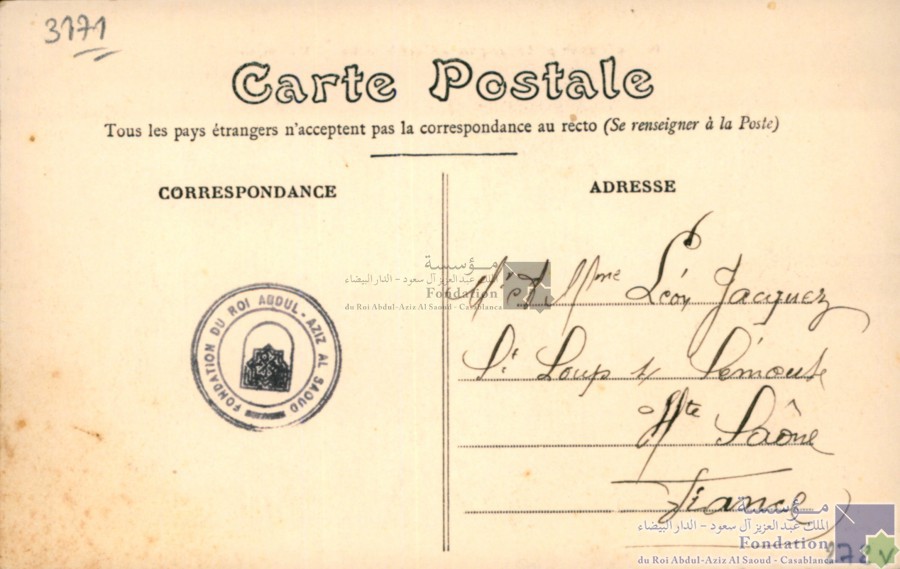 3171
Carte Postale
Tous les pays étrangers n'acceptent pas la correspondance au recto (Se renseigner à la Poste)
CORRESPONDANCE
ADRESSE
Mr & Mme Léon Jacquez
St Loup s/ Sémouse
Hte Saône
France
FONDATION DU ROI ABDUL-AZIZ AL SAOUD
مؤسسة
الملك عبد العزيز آل سعود - الدار البيضاء
Fondation
du Roi Abdul-Aziz Al Saoud - Casablanca
مؤسسة
الملك عبد العزيز آل سعود - الدار البيضاء
Fondation
du Roi Abdul-Aziz Al Saoud - Casablanca